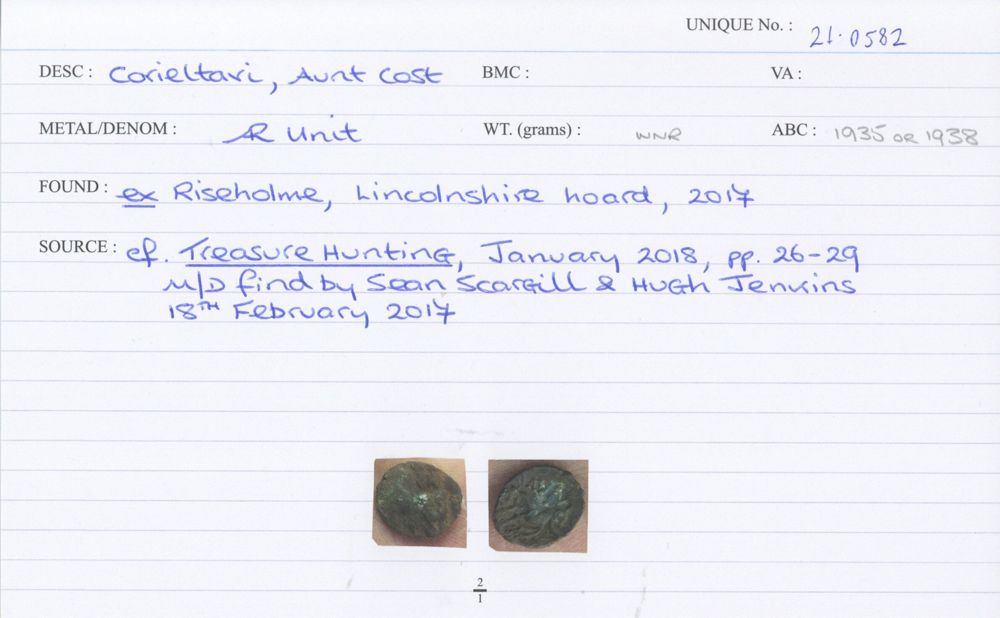 UNIQUE No. : 21·0582
DESC : Corieltavi, Aunt Cost BMC : VA :
METAL/DENOM : AR Unit WT. (grams) : WNR ABC : 1935 OR 1938
FOUND : ex Riseholme, Lincolnshire hoard, 2017
SOURCE : cf. Treasure Hunting, January 2018, pp. 26-29
M/D find by Sean Scargill & Hugh Jenkins
18TH February 2017
2
1